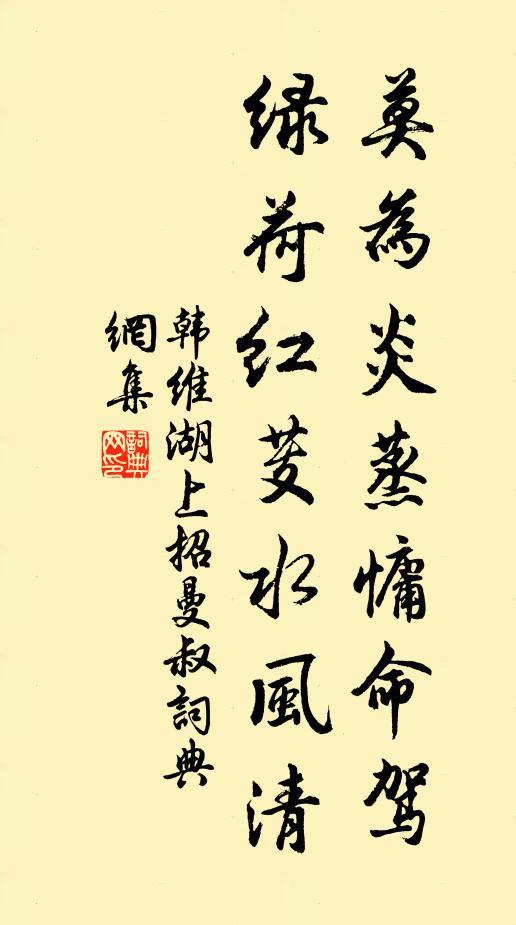 莫為炎蒸慵命駕
绿荷红芰水風清
韩维湖上招曼叔詞典
網集
詞典
网印